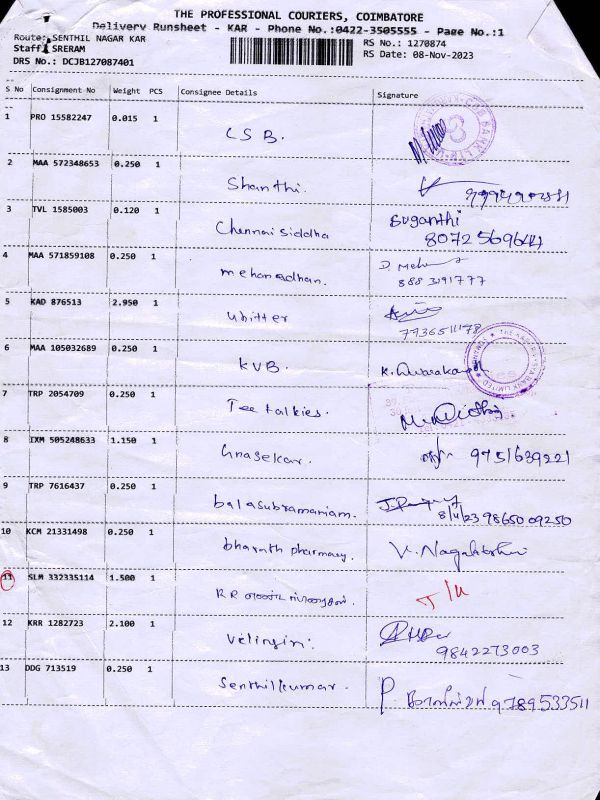 THE PROFESSIONAL COURIERS, COIMBATORE
Delivery Runsheet - KAR - Phone No.:0422-3505555 - Page No.:1
Route: SENTHIL NAGAR KAR
RS No.: 1270874
Staff: SRERAM
RS Date: 08-Nov-2023
DRS No.: DCJB127087401
S No Consignment No Weight PCS Consignee Details Signature
1 PRO 15582247 0.015 1 CSB.
2 MAA 572348653 0.250 1 Shanthi.
3 TVL 1585003 0.120 1 Chennai siddha Suganthi
8072569644
4 MAA 571859108 0.250 1 mehanadhan.
888 3191777
5 KAD 876513 2.950 1 ubitter
7736511178
6 MAA 105032689 0.250 1 KVB.
7 TRP 2054709 0.250 1 Tee talkies.
8 IXM 505248633 1.150 1 Gnasekar. 9751639221
9 TRP 7616437 0.250 1 balasubramaniam.
8/11/23 98650 09250
10 KCM 21331498 0.250 1 bharath pharmacy.
11 SLM 332335114 1.500 1 RR
12 KRR 1282723 2.100 1 Velingiri.
9842273003
13 DDG 713519 0.250 1 Senthilkumar. P. 9789533511